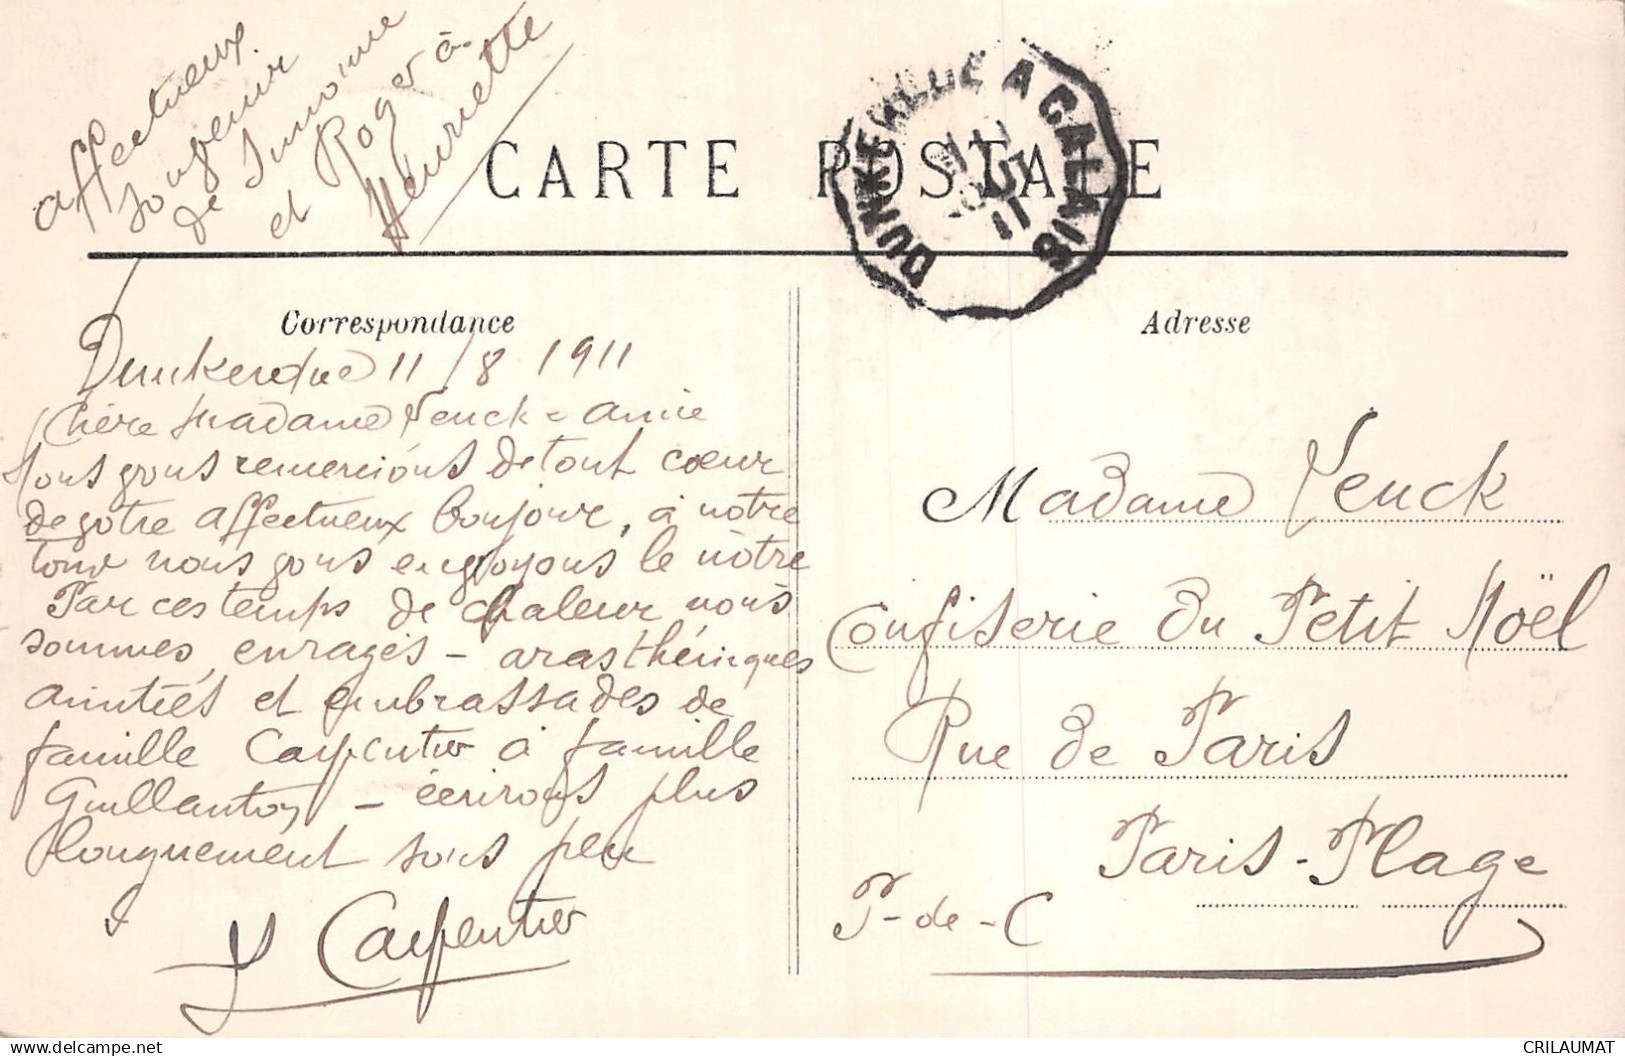 affectueux
souvenir
de Simonne
et Roger à
Henriette
CARTE POSTALE
DUNKERQUE A CALAIS
11
Correspondance
Dunkerque 11/8 1911
Chère Madame Venck - amie
Nous vous remercions de tout cœur
de votre affectueux bonjour, à notre
tour nous vous envoyons le nôtre
Par ces temps de chaleur nous
sommes enragés -
amitiés et embrassades de
famille Carpentier à famille
- écrirons plus
longuement sous peu
Carpentier
Adresse
Madame Venck
Confiserie du Petit Noël
Rue de Paris
Paris-Plage
P-de-C
www.delcampe.net
CRILAUMAT